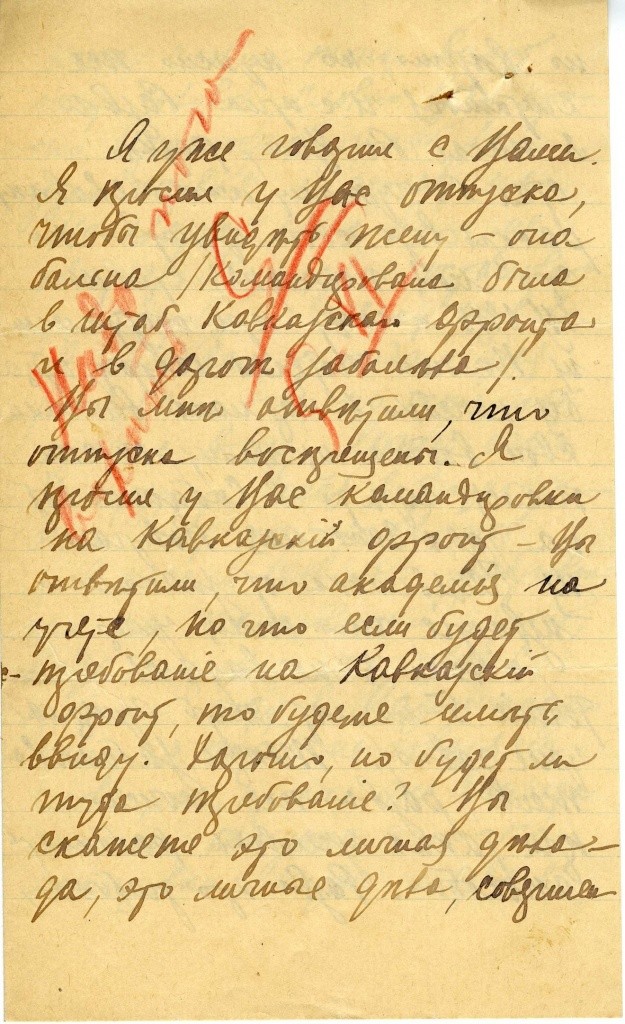 Я уже говорил с Вами.
Я просил у Вас отпуска,
чтобы увидѣть жену – она
больна /командирована была
в штаб Кавказскаго фронта
и в дороге заболела/.
Вы мнѣ отвѣтили, что
отпуска воспрещены. Я
просил у Вас командировки
на Кавказскій фронт – Вы
отвѣтили, что академія на
учете, но что если будет
требованіе на Кавказскій
фронт, то будете иметь
ввиду. Хорошо, но будет ли
туда требованіе? Вы
скажете это личная дѣла –
да, это личные дѣла, совершен